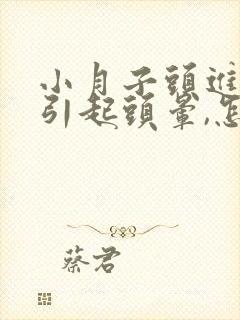 小月子頭進
引起頭暈,怎
蔡君